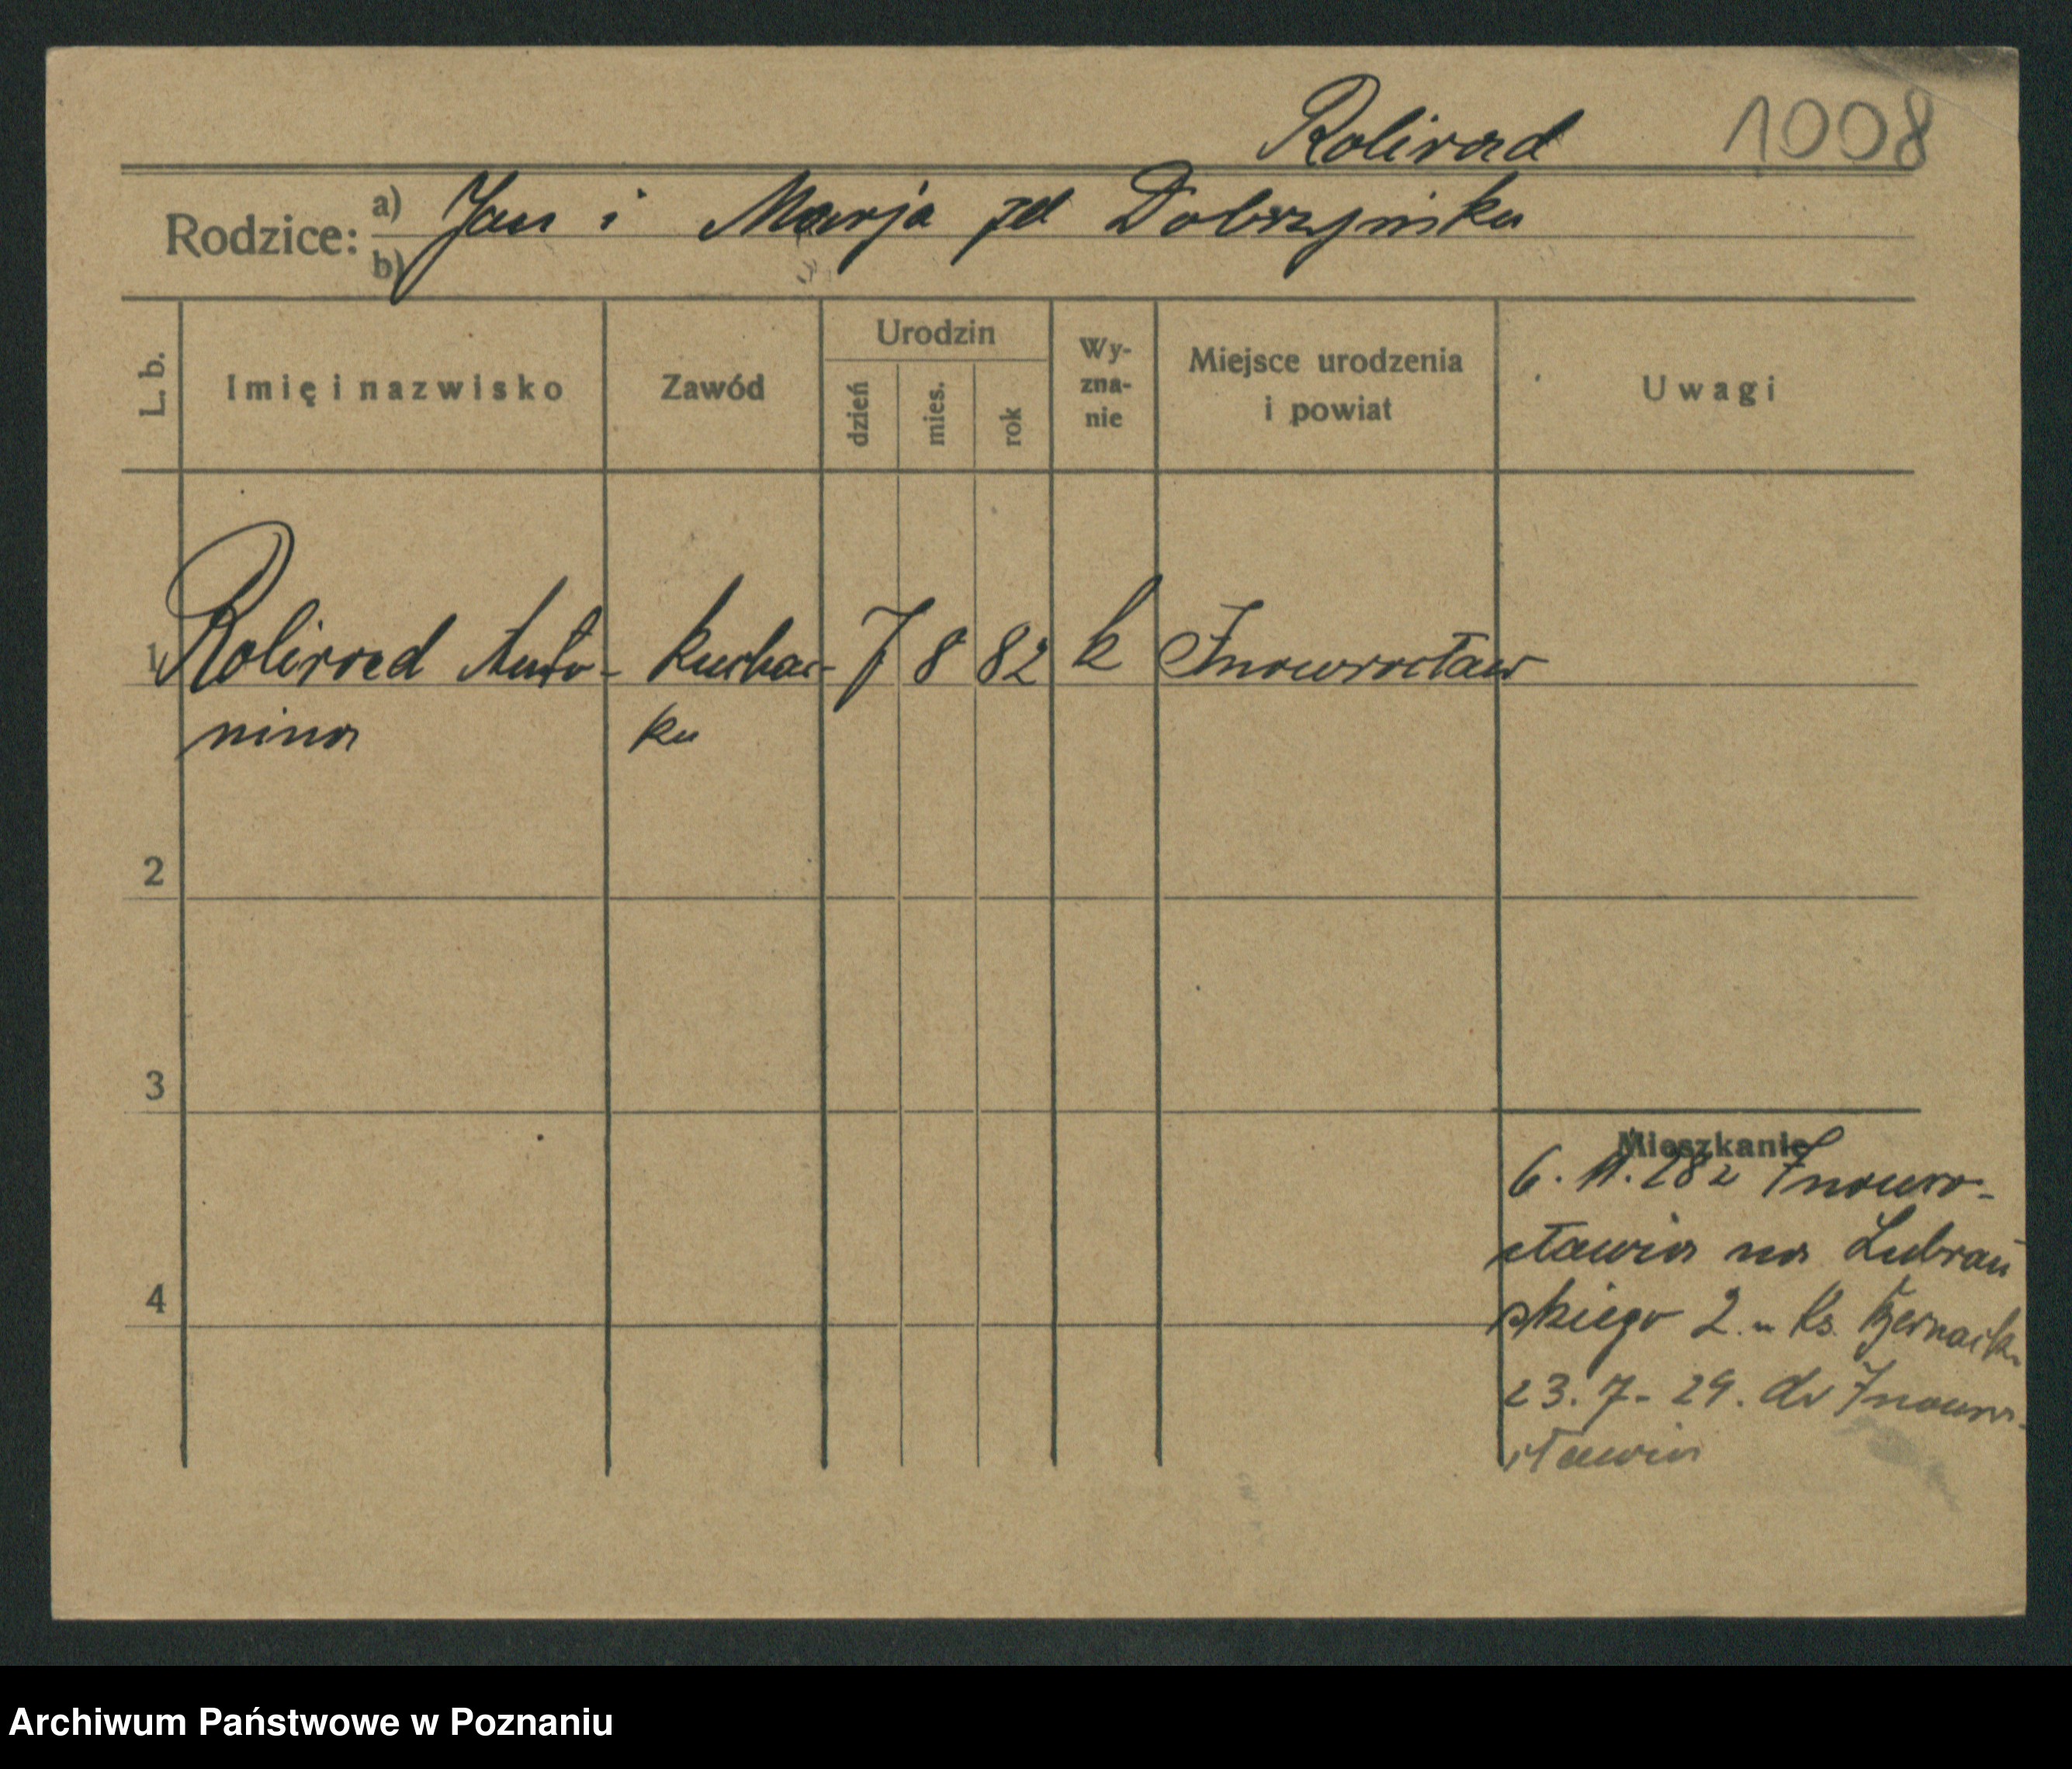 Rolirad 1008
Rodzice: a) Jan i Marja zd Dobrzyńska
b)
L. b. Imię i nazwisko Zawód Urodzin dzień mies. rok Wy-zna-nie Miejsce urodzenia i powiat Uwagi
1 Rolirad Anto- kuchar- 7 8 82 k Inowrocław
nina ka
2
3
Mieszkanie
6. 11. 28 z Inowro-
cławia na Lubrań
4
skiego 2. u Ks.
23. 7. 29. do Inowro-
cławia
Archiwum Państwowe w Poznaniu